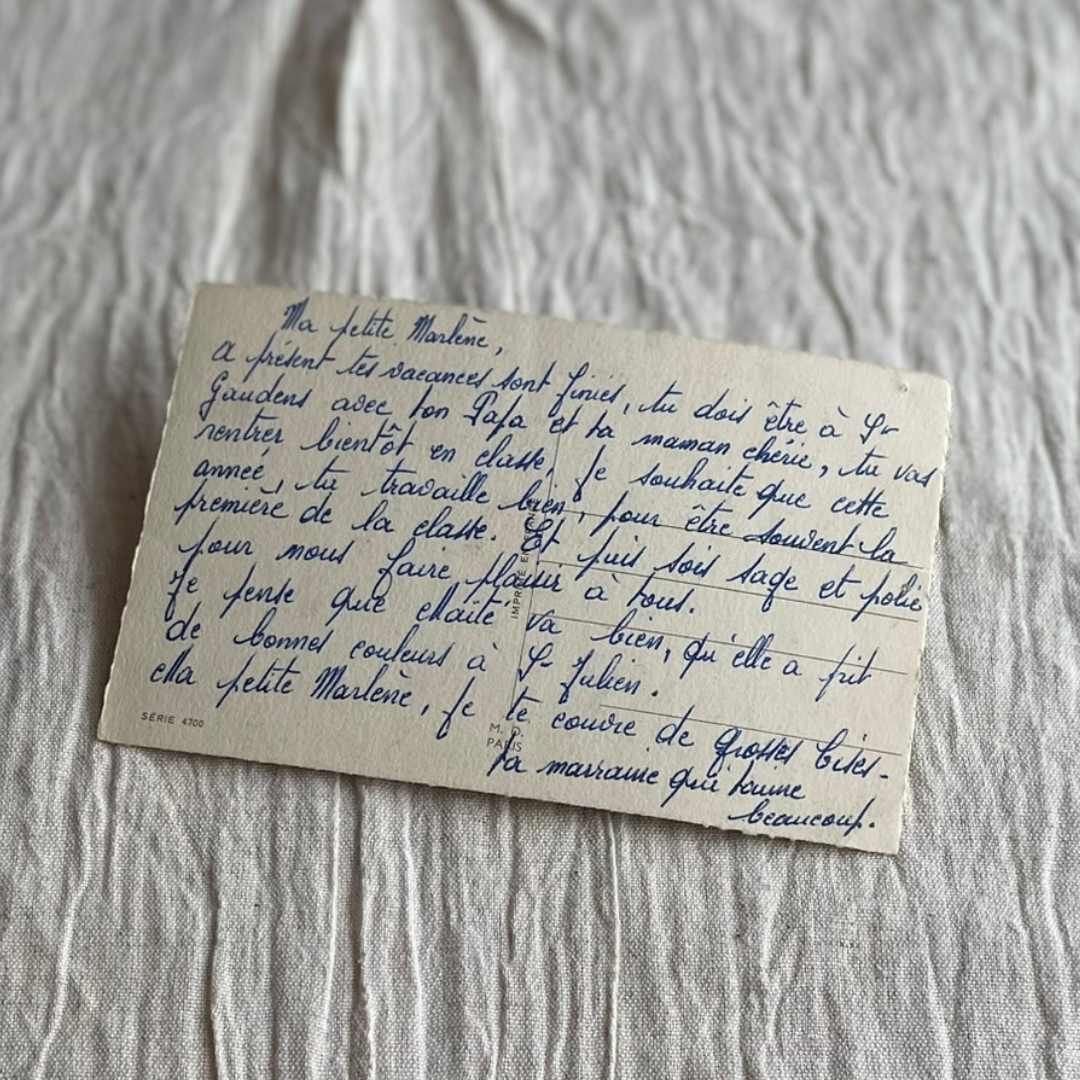 Ma petite Marlène,
A présent tes vacances sont finies, tu dois être à St
Gaudens avec ton Papa et ta maman chérie, tu vas
rentrer bientôt en classe, Je souhaite que cette
année, tu travaille bien, pour être souvent la
première de la classe. Et puis sois sage et polie
pour nous faire plaisir à tous.
Je pense que Maité va bien, qu'elle a prit
de bonnes couleurs à St Julien.
Ma petite Marlène, je te couvre de grosses bises.
Ta marraine qui t'aime
beaucoup.
SÉRIE 4700
M. D.
PARIS